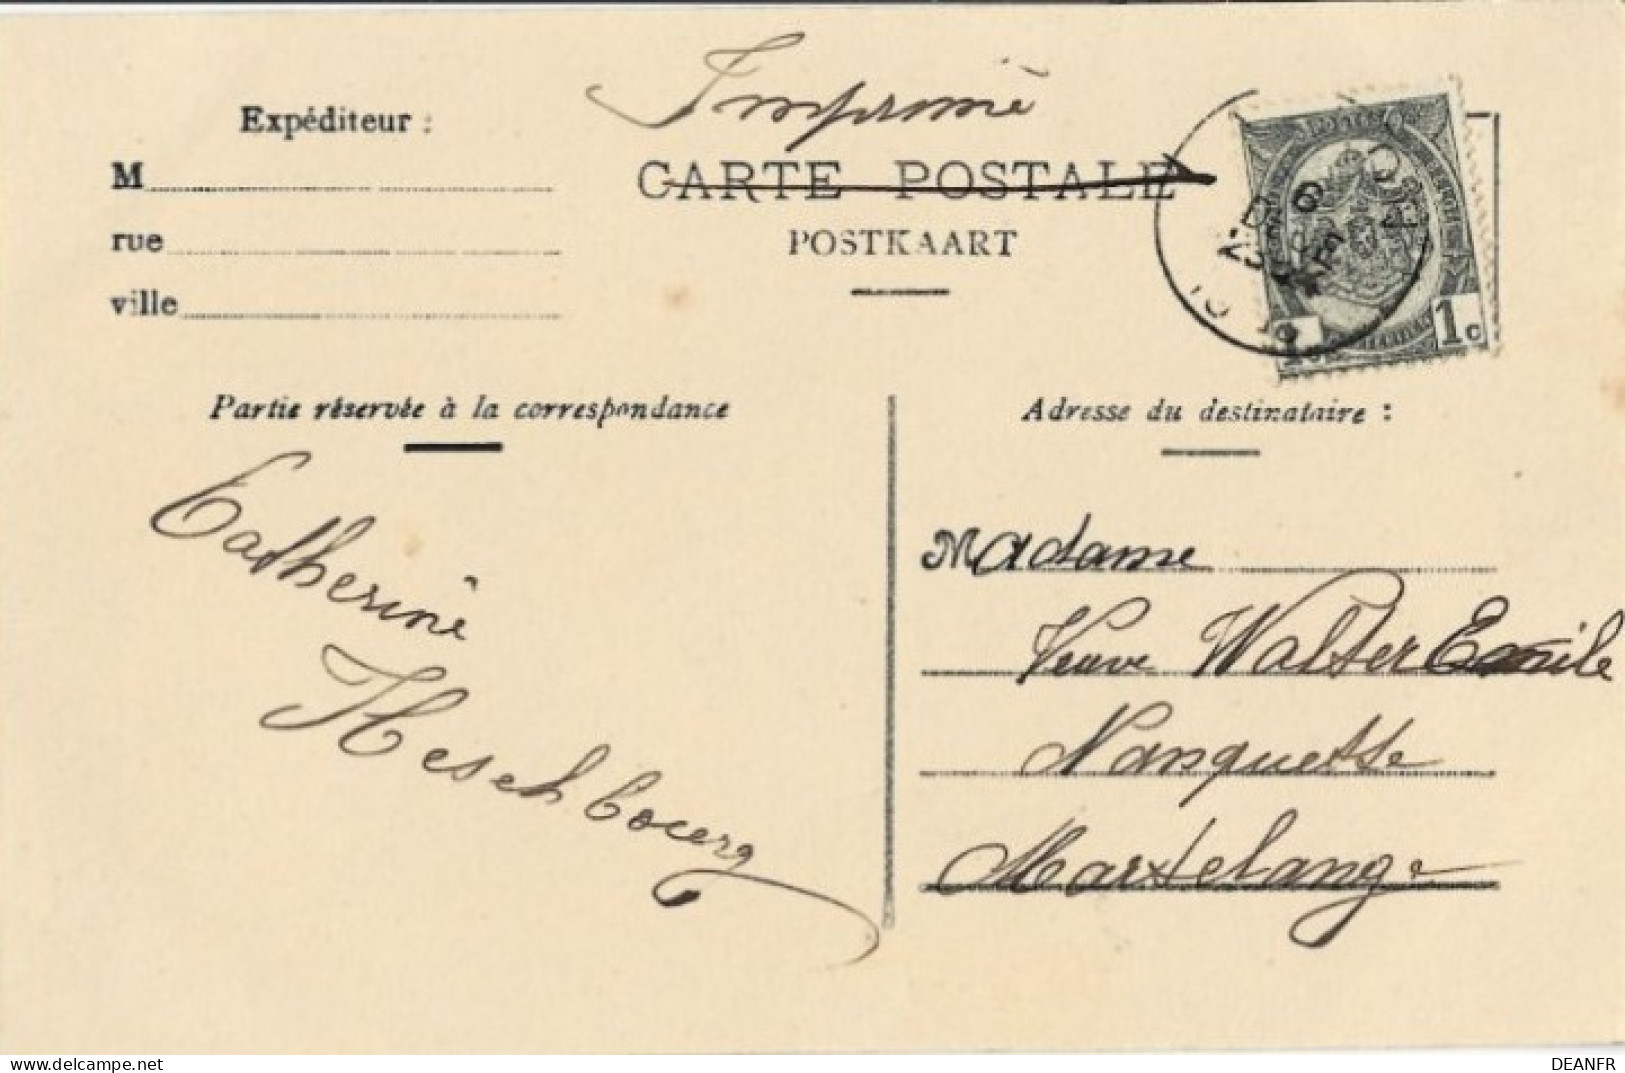 Imprimé
Expéditeur :
CARTE POSTALE
M
POSTKAART
rue
ville
1c
1c
Partie réservée à la correspondance
Adresse du destinataire :
Catherine
Heschbourg
Madame
Veuve Walter Emile
Nanquette
Martelange
delcampe.net
DEANFR